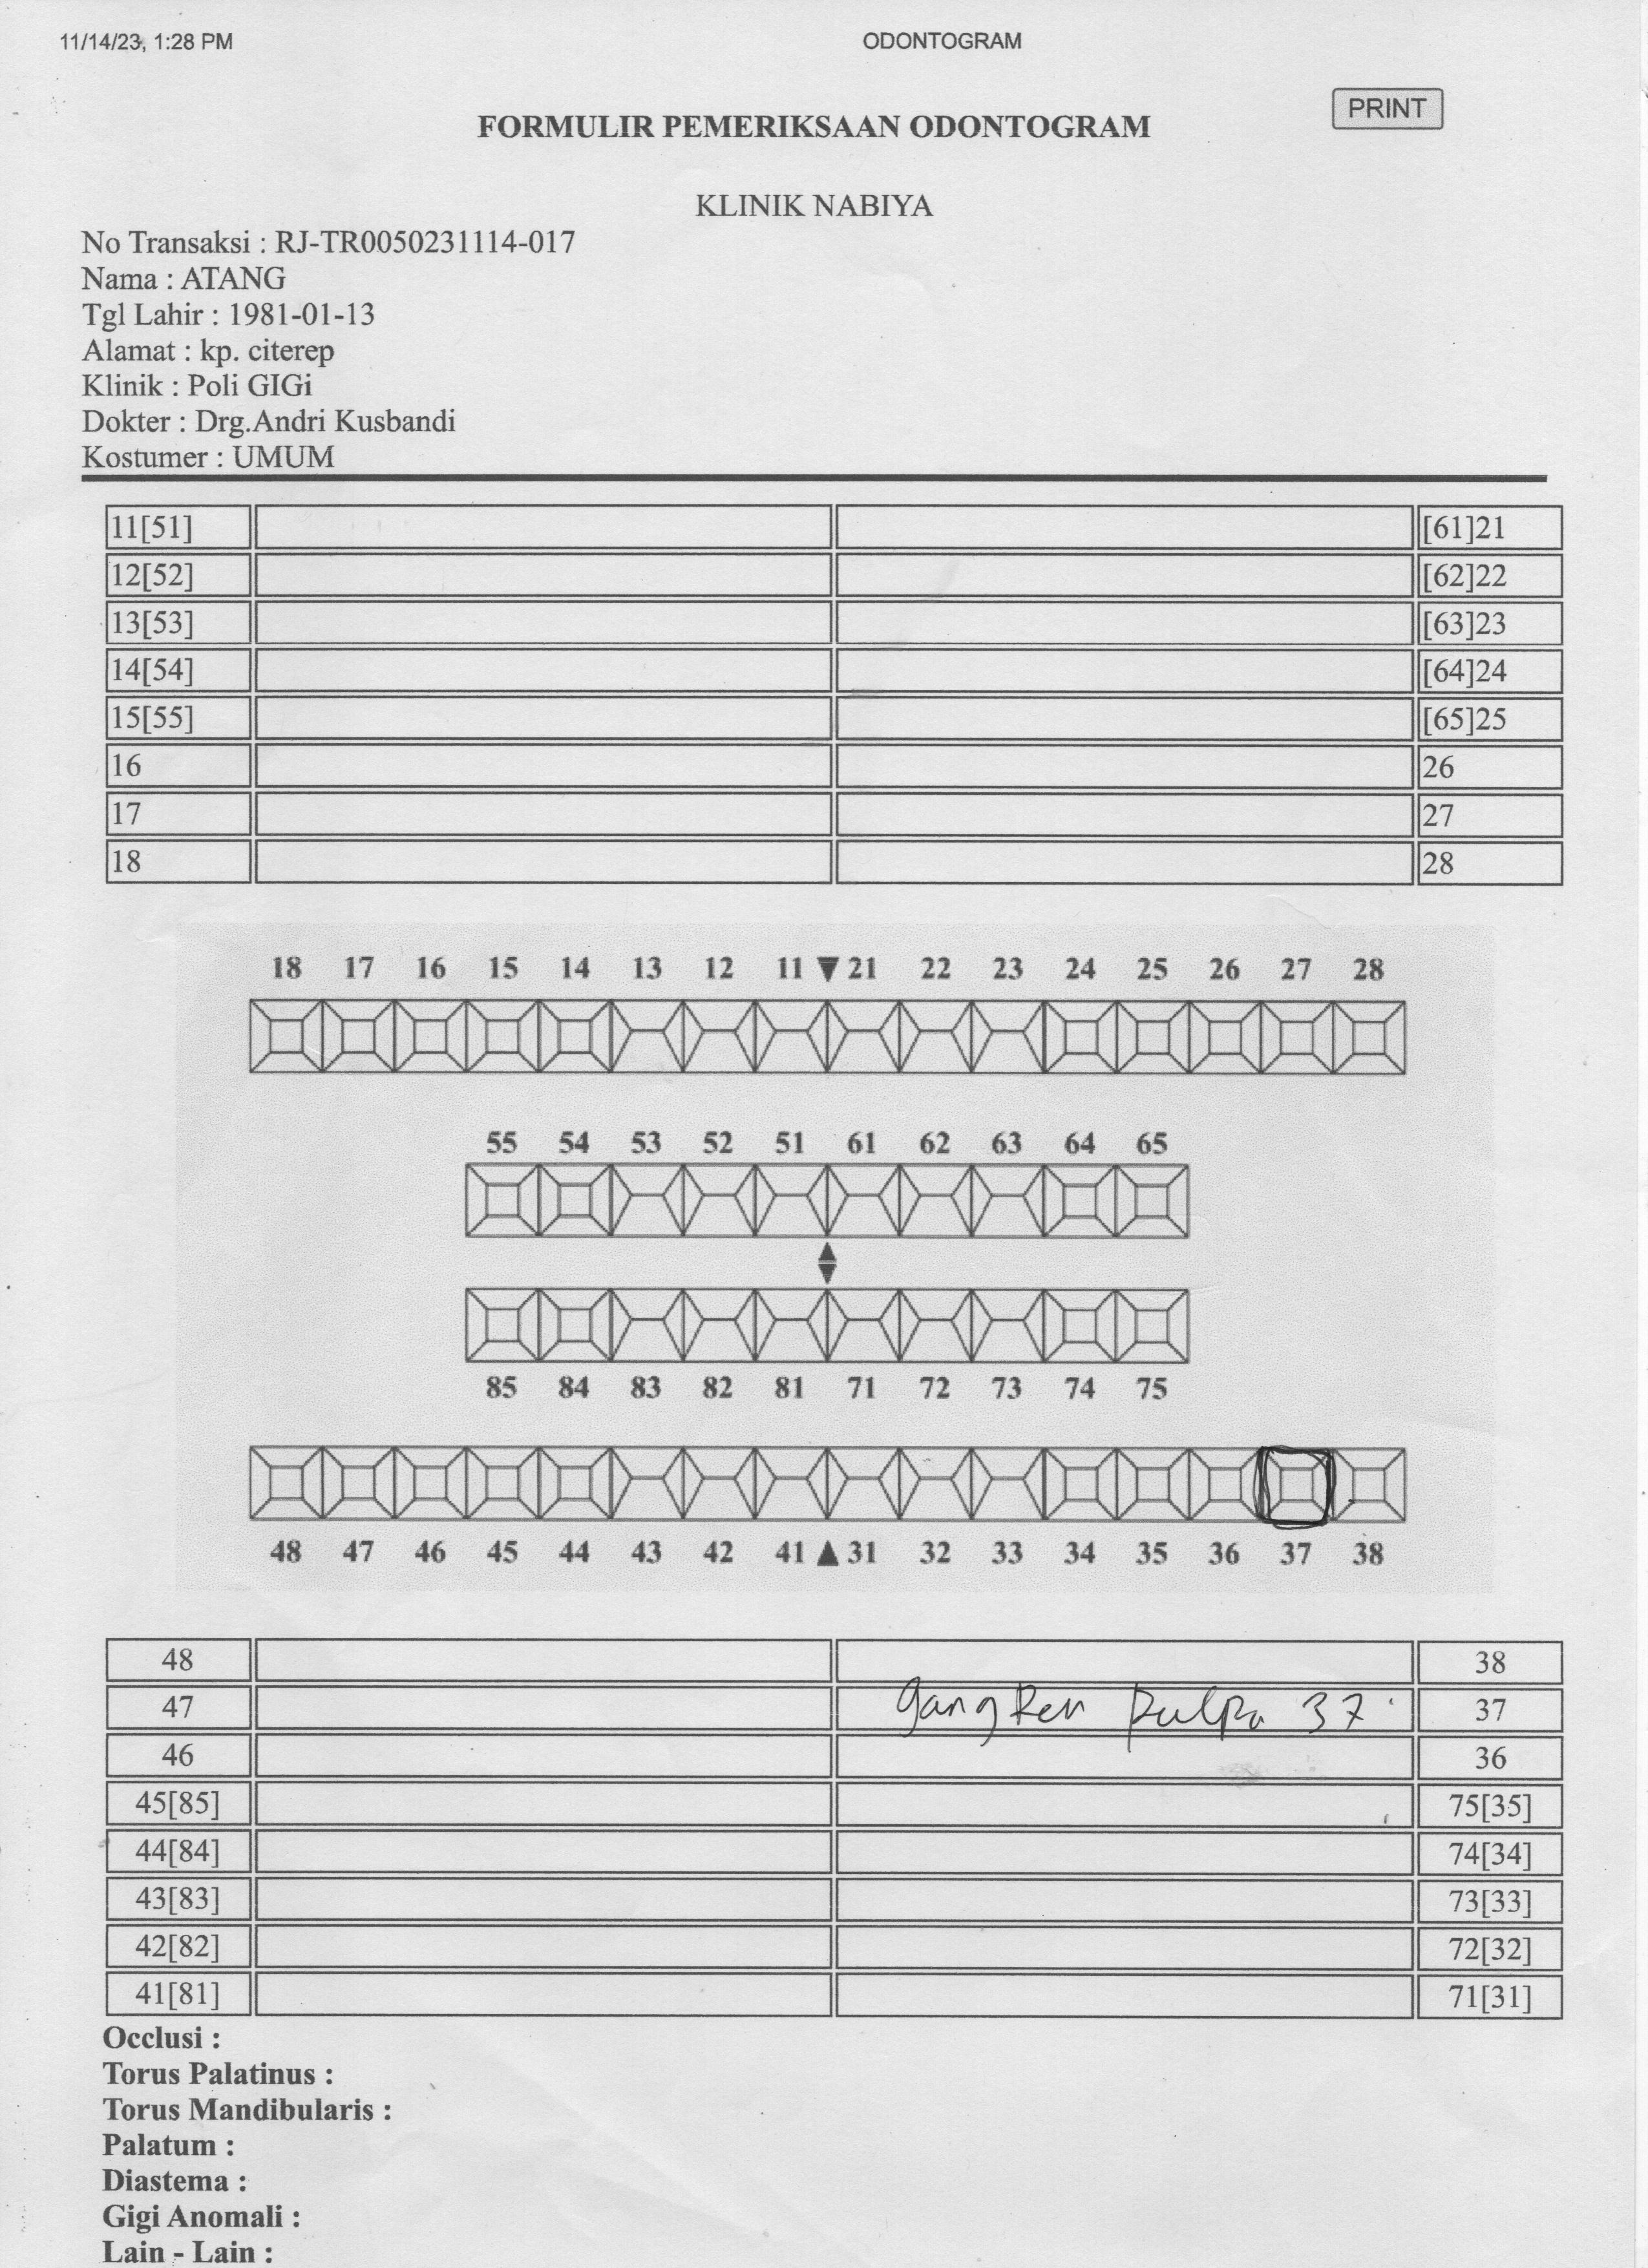 11/14/23, 1:28 PM ODONTOGRAM
PRINT
FORMULIR PEMERIKSAAN ODONTOGRAM
KLINIK NABIYA
No Transaksi : RJ-TR0050231114-017
Nama : ATANG
Tgl Lahir : 1981-01-13
Alamat : kp. citerep
Klinik : Poli GIGi
Dokter : Drg.Andri Kusbandi
Kostumer : UMUM
11[51] [61]21
12[52] [62]22
13[53] [63]23
14[54] [64]24
15[55] [65]25
16 26
17 27
18 28
18 17 16 15 14 13 12 11 21 22 23 24 25 26 27 28
55 54 53 52 51 61 62 63 64 65
85 84 83 82 81 71 72 73 74 75
48 47 46 45 44 43 42 41 31 32 33 34 35 36 37 38
48 38
47 gangren pulpa 37 37
46 36
45[85] 75[35]
44[84] 74[34]
43[83] 73[33]
42[82] 72[32]
41[81] 71[31]
Occlusi :
Torus Palatinus :
Torus Mandibularis :
Palatum :
Diastema :
Gigi Anomali :
Lain - Lain :